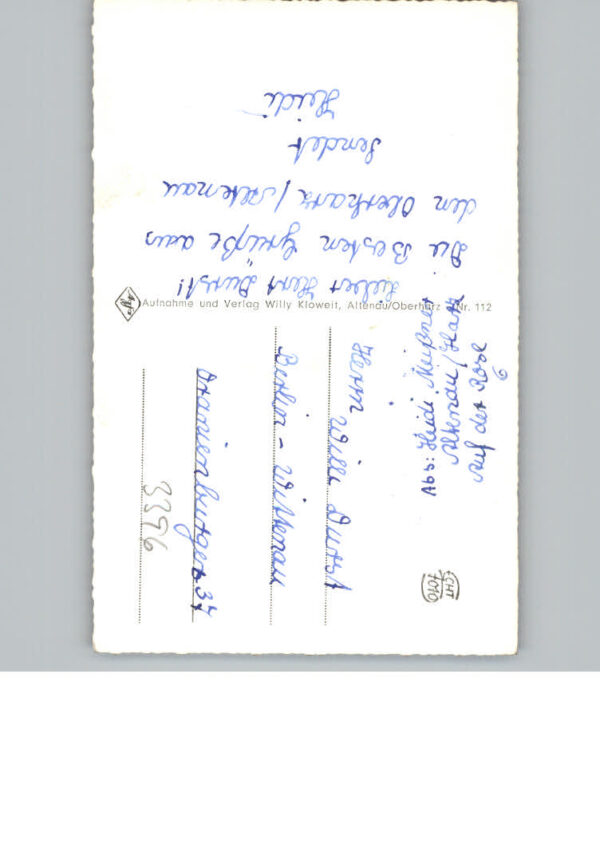 Lieber Herr Durst!
Die Besten Grüße aus
dem Oberharz / Altenau
sendet
Heidi
Aufnahme und Verlag Willy Kloweit, Altenau/Oberharz Nr. 112
Abs: Heidi Meißner
Altenau/Harz
Auf der Rose
6
Herrn
Willi Durst
Berlin - Wittenau
Oranienburger 37
3396
ECHT
FOTO